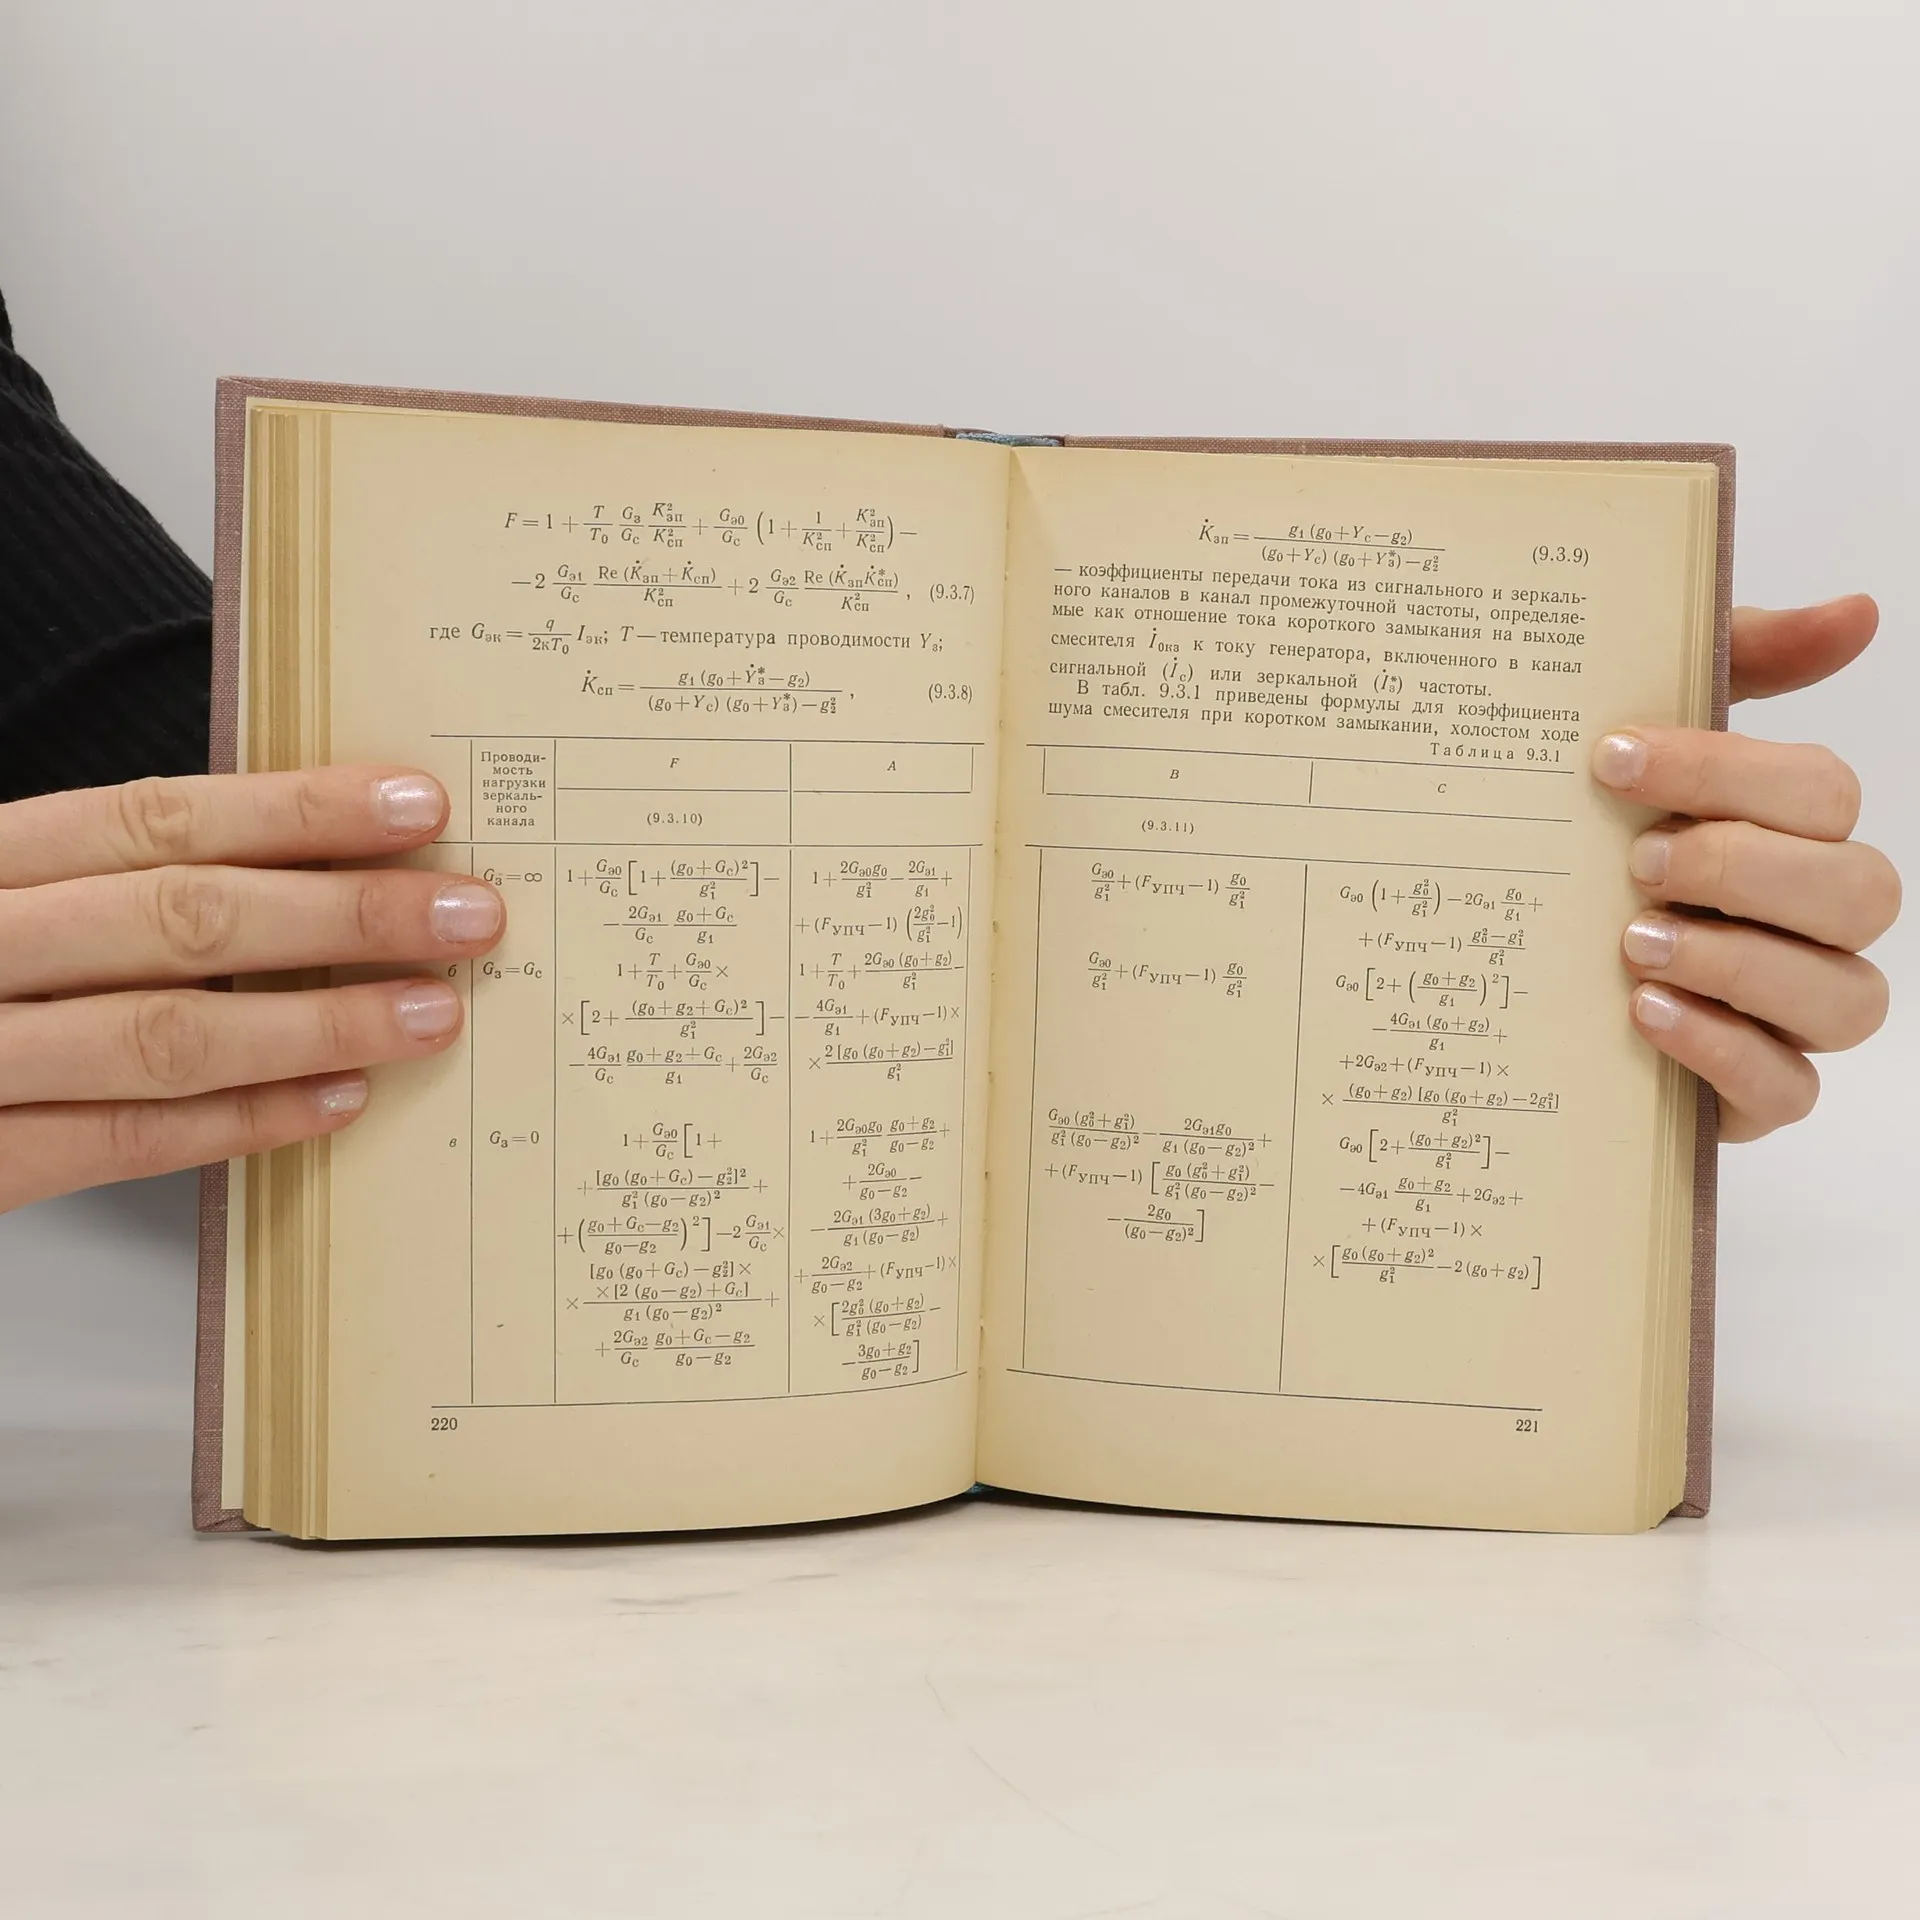 F = 1 + T/T₀ G₃/G_с K²_зп/K²_сп + G_э0/G_с (1 + 1/K²_сп + K²_зп/K²_сп) —
— 2 G_э1/G_с Re (K̇_зп + K̇_сп)/K²_сп + 2 G_э2/G_с Re (K̇_зп K̇*_сп)/K²_сп , (9.3.7)
где G_эк = q/2кT₀ I_эк; T — температура проводимости Y_з;
K̇_сп = g₁ (g₀ + Ẏ*_з — g₂)/(g₀ + Y_с) (g₀ + Y*_з) — g²₂ , (9.3.8)
Проводи-
мость
нагрузки
зеркаль-
ного
канала
F
A
(9.3.10)
G_з = ∞
1 + G_э0/G_с [1 + (g₀ + G_с)²/g²₁] —
— 2G_э1/G_с g₀ + G_с/g₁
1 + 2G_э0g₀/g²₁ — 2G_э1/g₁ +
+ (F_УПЧ — 1) (2g²₀/g²₁ — 1)
б
G_з = G_с
1 + T/T₀ + G_э0/G_с ×
× [2 + (g₀ + g₂ + G_с)²/g²₁] —
— 4G_э1/G_с g₀ + g₂ + G_с/g₁ + 2G_э2/G_с
1 + T/T₀ + 2G_э0 (g₀ + g₂)/g²₁ —
— 4G_э1/g₁ + (F_УПЧ — 1) ×
× 2 [g₀ (g₀ + g₂) — g²₁]/g²₁
в
G_з = 0
1 + G_э0/G_с [1 +
+ [g₀ (g₀ + G_с) — g²₂]²/g²₁ (g₀ — g₂)² +
+ (g₀ + G_с — g₂/g₀ — g₂)²] — 2 G_э1/G_с ×
× [g₀ (g₀ + G_с) — g²₂] × × [2 (g₀ — g₂) + G_с]/g₁ (g₀ — g₂)² +
+ 2G_э2/G_с g₀ + G_с — g₂/g₀ — g₂
1 + 2G_э0g₀/g²₁ g₀ + g₂/g₀ — g₂ +
+ 2G_э0/g₀ — g₂ —
— 2G_э1 (3g₀ + g₂)/g₁ (g₀ — g₂) +
+ 2G_э2/g₀ — g₂ + (F_УПЧ — 1) ×
× [2g²₀ (g₀ + g₂)/g²₁ (g₀ — g₂) —
— 3g₀ + g₂/g₀ — g₂]
220
K̇_зп = g₁ (g₀ + Y_с — g₂)/(g₀ + Y_с) (g₀ + Y*_з) — g²₂ (9.3.9)
— коэффициенты передачи тока из сигнального и зеркаль-
ного каналов в канал промежуточной частоты, определяе-
мые как отношение тока короткого замыкания на выходе
смесителя İ_окз к току генератора, включенного в канал
сигнальной (İ_с) или зеркальной (İ*_з) частоты.
В табл. 9.3.1 приведены формулы для коэффициента
шума смесителя при коротком замыкании, холостом ходе
Таблица 9.3.1
B
C
(9.3.11)
G_э0/g²₁ + (F_УПЧ — 1) g₀/g²₁
G_э0 (1 + g²₀/g²₁) — 2G_э1 g₀/g₁ +
+ (F_УПЧ — 1) g²₀ — g²₁/g²₁
G_э0/g²₁ + (F_УПЧ — 1) g₀/g²₁
G_э0 [2 + (g₀ + g₂/g₁)²] —
— 4G_э1 (g₀ + g₂)/g₁ +
+ 2G_э2 + (F_УПЧ — 1) ×
× (g₀ + g₂) [g₀ (g₀ + g₂) — 2g²₁]/g²₁
G_э0 (g²₀ + g²₁)/g²₁ (g₀ — g₂)² — 2G_э1g₀/g₁ (g₀ — g₂)² +
+ (F_УПЧ — 1) [g₀ (g²₀ + g²₁)/g²₁ (g₀ — g₂)² —
— 2g₀/(g₀ — g₂)²]
G_э0 [2 + (g₀ + g₂)²/g²₁] —
— 4G_э1 g₀ + g₂/g₁ + 2G_э2 +
+ (F_УПЧ — 1) ×
× [g₀ (g₀ + g₂)²/g²₁ — 2 (g₀ + g₂)]
221